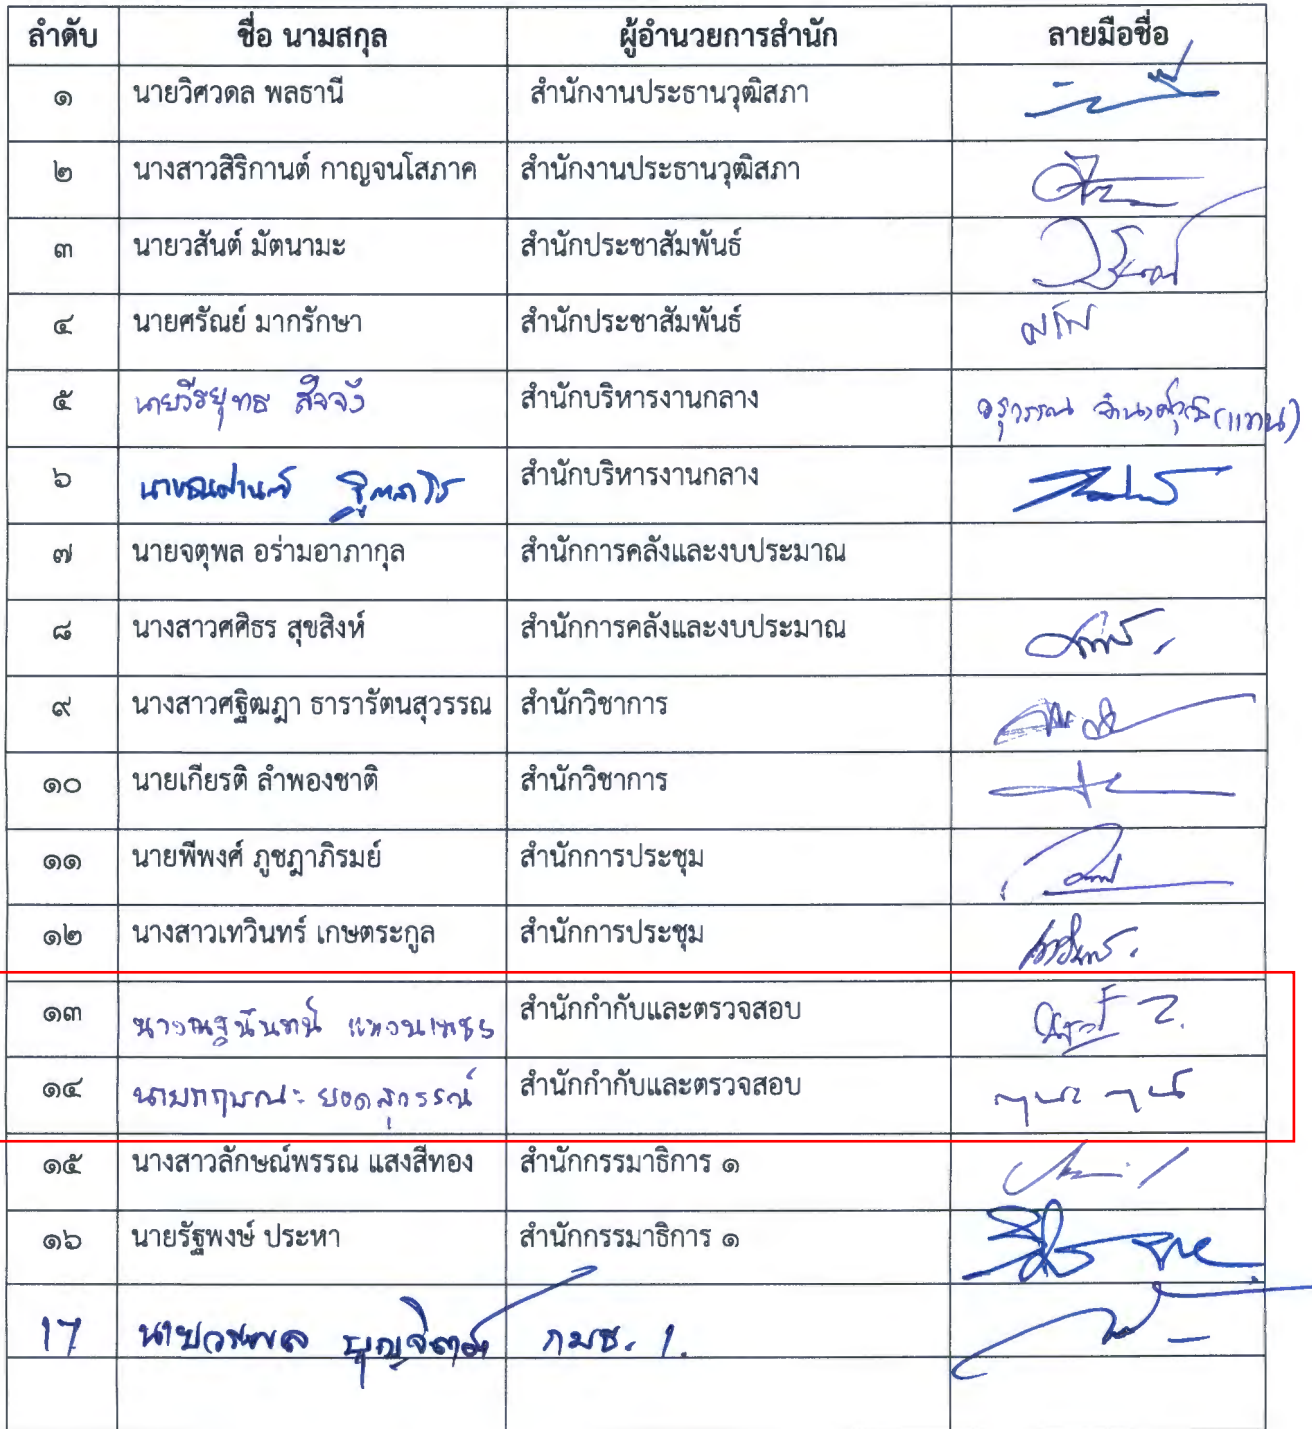 ลำดับ ชื่อ นามสกุล ผู้อำนวยการสำนัก ลายมือชื่อ
๑ นายวิศวดล พลธานี สำนักงานประธานวุฒิสภา
๒ นางสาวสิริกานต์ กาญจนโสภาค สำนักงานประธานวุฒิสภา
๓ นายวสันต์ มัตนามะ สำนักประชาสัมพันธ์
๔ นายศรัณย์ มากรักษา สำนักประชาสัมพันธ์
๕ นายวีรยุทธ สำนักบริหารงานกลาง (แทน)
๖ สำนักบริหารงานกลาง
๗ นายจตุพล อร่ามอาภากุล สำนักการคลังและงบประมาณ
๘ นางสาวศศิธร สุขสิงห์ สำนักการคลังและงบประมาณ
๙ นางสาวศฐิฒฎา ธารารัตนสุวรรณ สำนักวิชาการ
๑๐ นายเกียรติ ลำพองชาติ สำนักวิชาการ
๑๑ นายพีพงศ์ ภูชฎาภิรมย์ สำนักการประชุม
๑๒ นางสาวเทวินทร์ เกษตระกูล สำนักการประชุม
๑๓ สำนักกำกับและตรวจสอบ
๑๔ นายกฤษณะ ยอดสุวรรณ์ สำนักกำกับและตรวจสอบ
๑๕ นางสาวลักษณ์พรรณ แสงสีทอง สำนักกรรมาธิการ ๑
๑๖ นายรัฐพงษ์ ประหา สำนักกรรมาธิการ ๑
17 กมธ. 1.